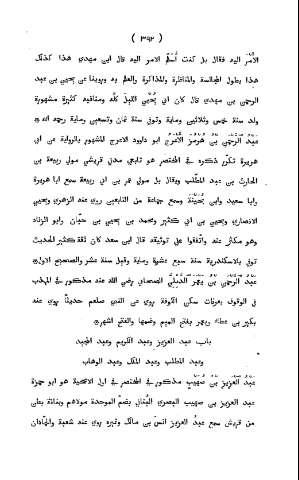 ( ٣٩٢ )
الامر اليه فقال بل كنت أُسَلّم الامر اليه قال ابى مهدي هذا كذلك
هذا بطول المجالسة والمناظرة والمذاكرة والعلم به وروينا عن يحيى بن عبد
الرحمن بن مهدي قال كان ابى يُحْيِي الليل كلّه ومناقبه كثيرة مشهورة
ولد سنة خمس وثلاثين وماية وتوفى سنة ثمان وتسعين وماية رحمه الله
عبد الرحمن بن هُرْمُز الأَعْرَج ابو داوود الاعرج المشهور بالرواية عن ابى
هريرة تكرّر ذكره فى المختصر هو تابعى مدنى قرشى مولى ربيعة بن
الحارث بن عبد المطّلب ويقال بل مولى محمد بن ابى ربيعة سمع ابا هريرة
رابا سعيد وابن بُحَيْنَة وسمع جماعة من التابعين روى عنه الزهرى ويحيى
الانصارى ويحيى بن ابى كثير ومحمد بن يحيى بن حبّان وابو الزناد
وهو مكثر عنه واتّفقوا على توثيقه قال ابن سعد كان ثقة كثير الحديث
توفى بالاسكندرية سنة سبع عشرة وماية وقيل سنة عشر والصحيح الاول
عبد الرحمن بن يَعْمَر الدِّيلىّ الصحابى رضى الله عنه مذكور فى المهذب
فى الوقوف بعرفات سكن الكوفة روى عن النبى صلعم حديثا روى عنه
بكير بن عطاء ويعمر بفتح الميم وضمها والفتح اشهر
باب عبد العزيز وعبد الكريم وعبد المجيد
وعبد المطلب وعبد الملك وعبد الوهاب
عبد العزيز بن صُهَيْب مذكور فى المختصر فى اول الاضحية هو ابو حمزة
عبد العزيز بن صهيب البصرى البُنانى بضمّ الموحدة مولاهم وبنانة بطن
من قريش سمع عبد العزيز انس بن مالك وغيره روى عنه شعبة والحمّادان